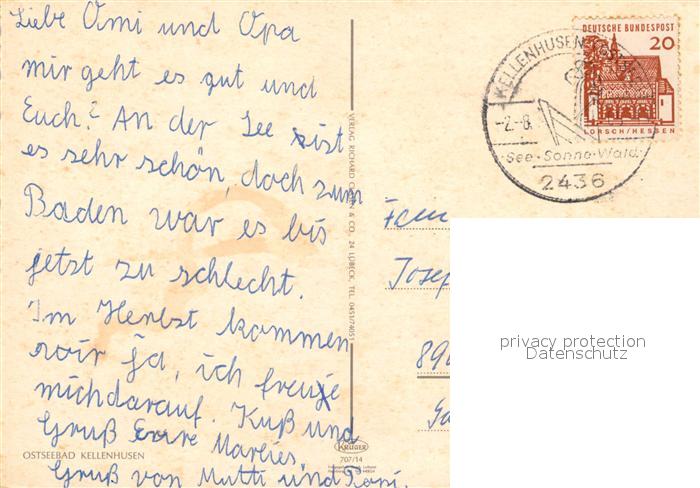 Liebe Omi und Opa
mir geht es gut und
Euch? An der See ist
es sehr schön, doch zum
Baden war es bis
jetzt zu schlecht.
Im Herbst kommen
wir ja, ich freue
mich darauf. Kuß und
Gruß Eure Mareies.
Gruß von Mutti und
OSTSEEBAD KELLENHUSEN
VERLAG RICHARD & CO., 24 LÜBECK, TEL. 0451/74051
KRÜGER
707/14
DEUTSCHE BUNDESPOST
20
LORSCH/HESSEN
KELLENHUSEN
-2.-8.
See·Sonne·Wald·
2436
Fam
Josef
890
privacy protection
Datenschutz